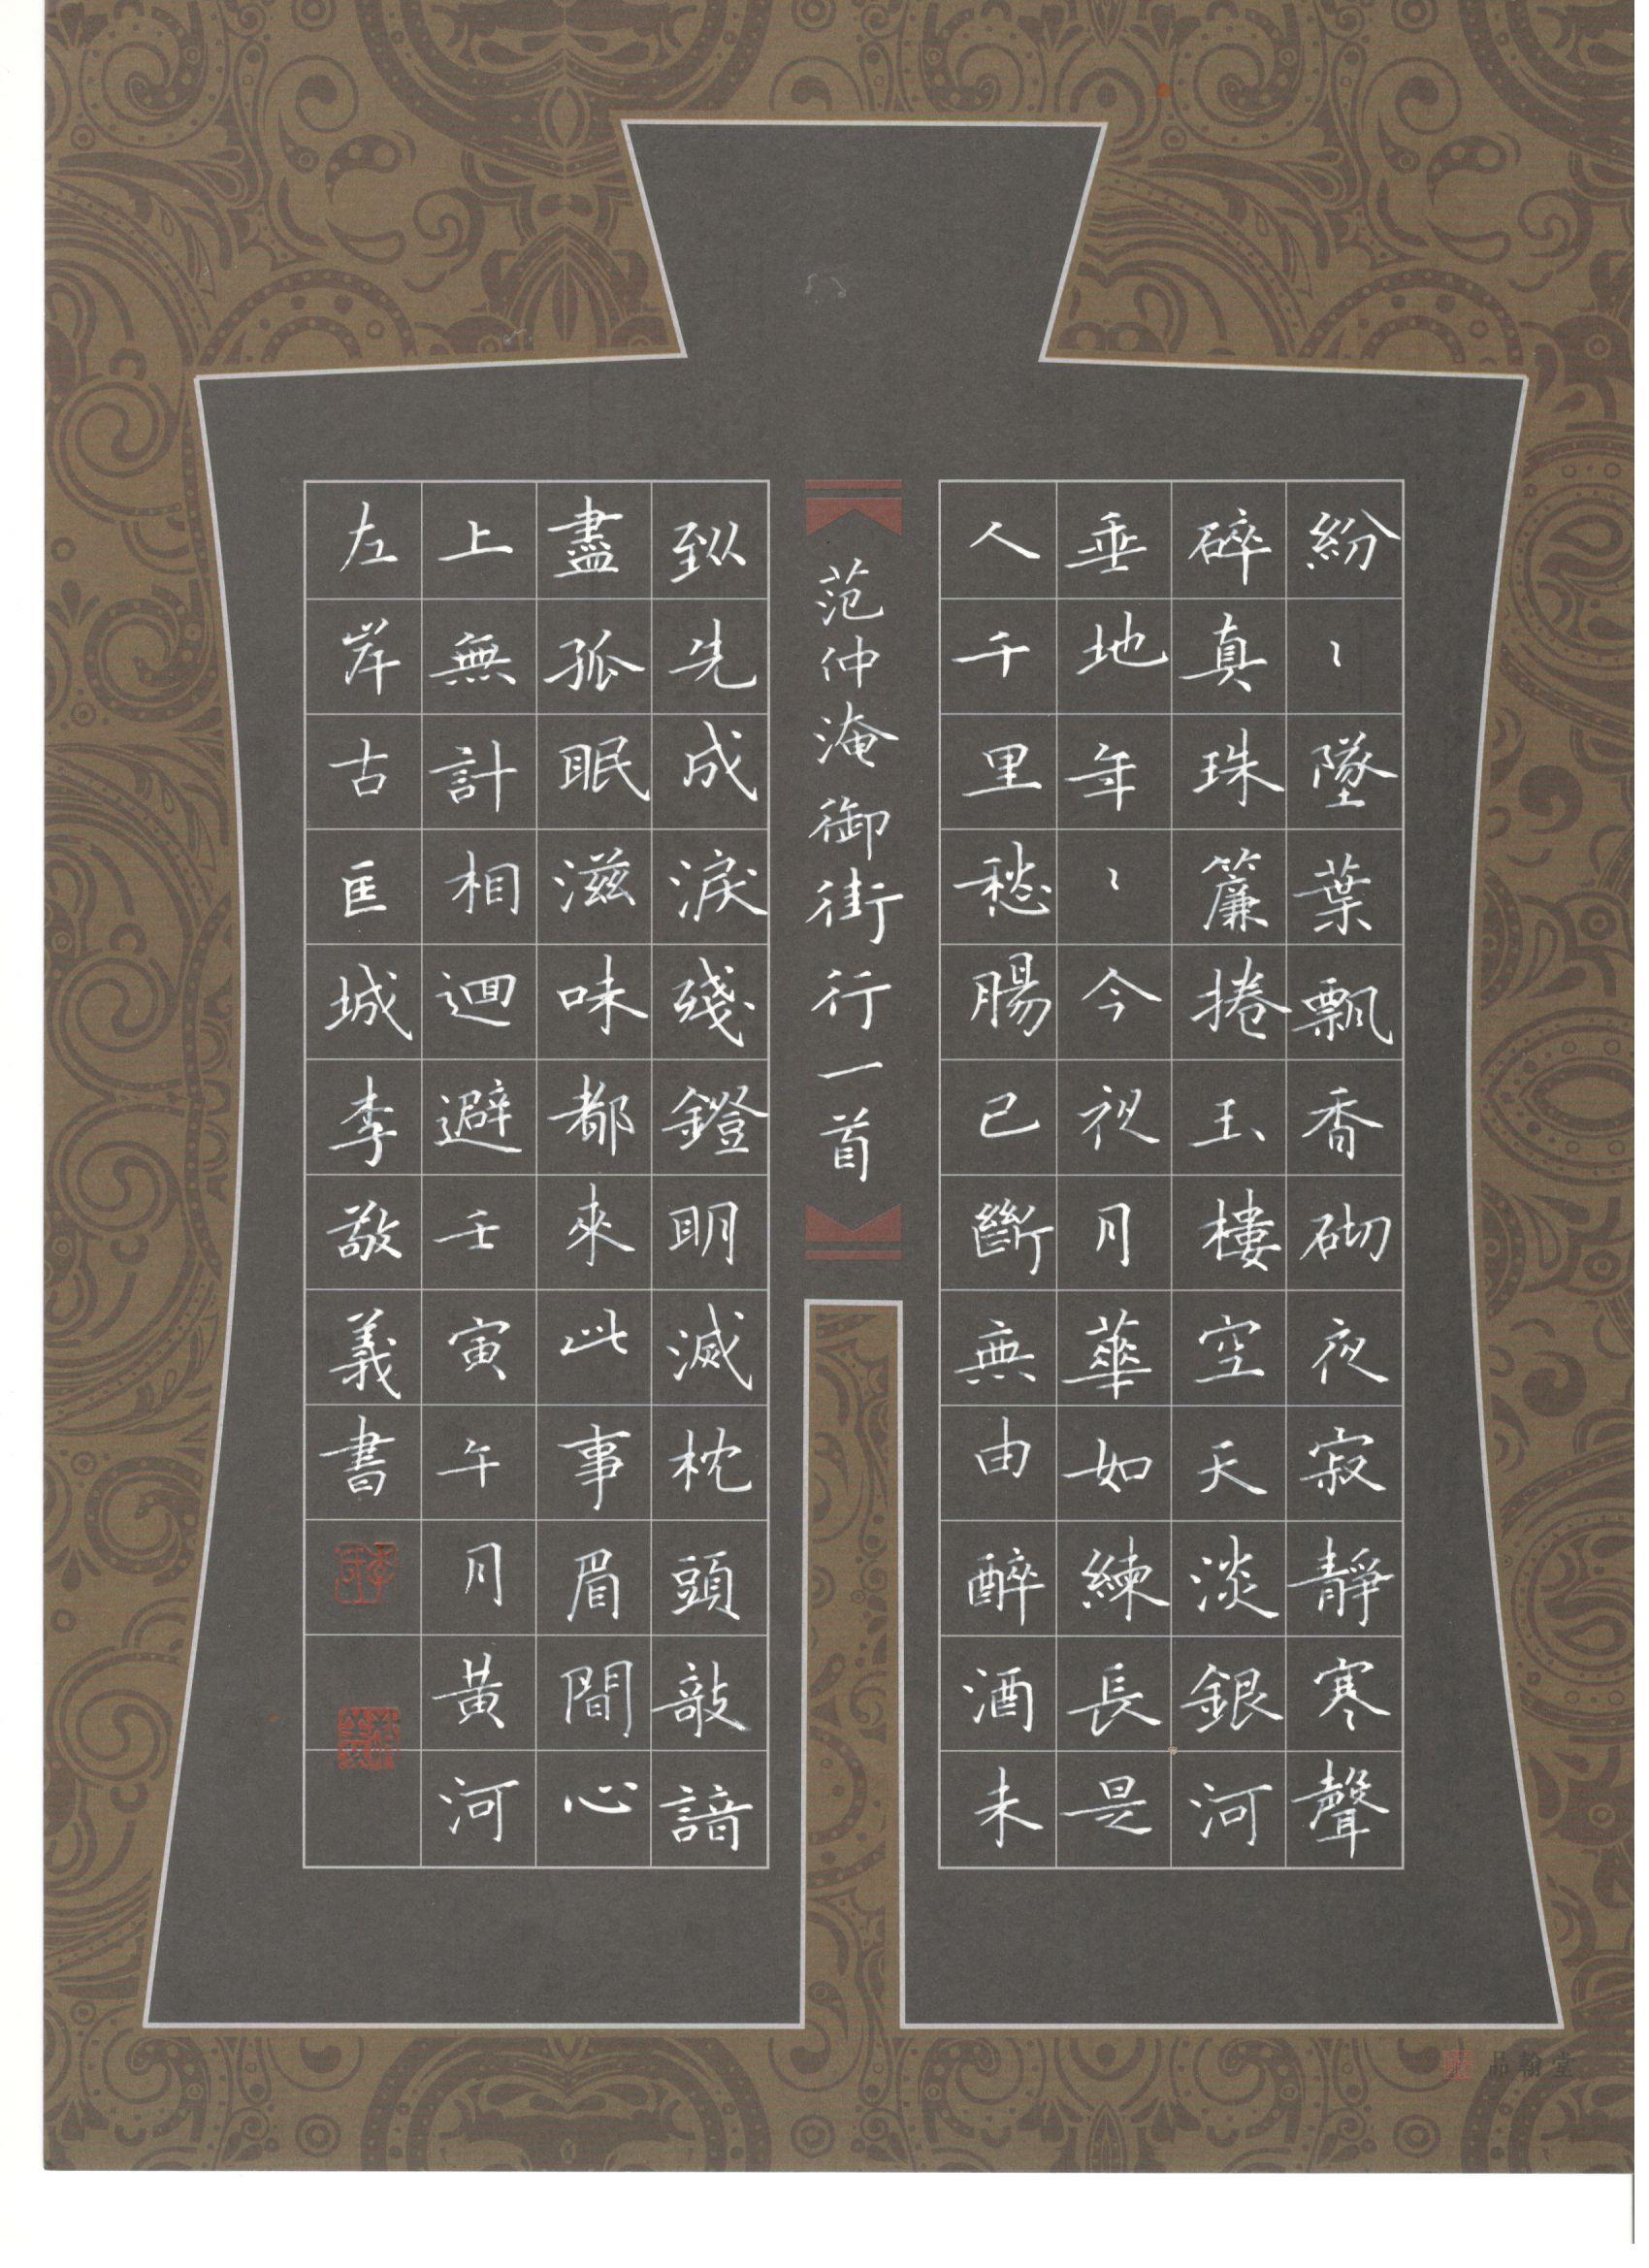 紛〻墜葉飄香砌夜寂靜寒聲
碎真珠簾捲玉樓空天淡銀河
垂地年〻今夜月華如練長是
人千里愁腸已斷無由醉酒未
范仲淹御街行一首
到先成淚殘鐙明滅枕頭敲諳
盡孤眠滋味都來此事眉間心
上無計相迴避壬寅午月黃河
左岸古匡城李敬義書
品翰堂